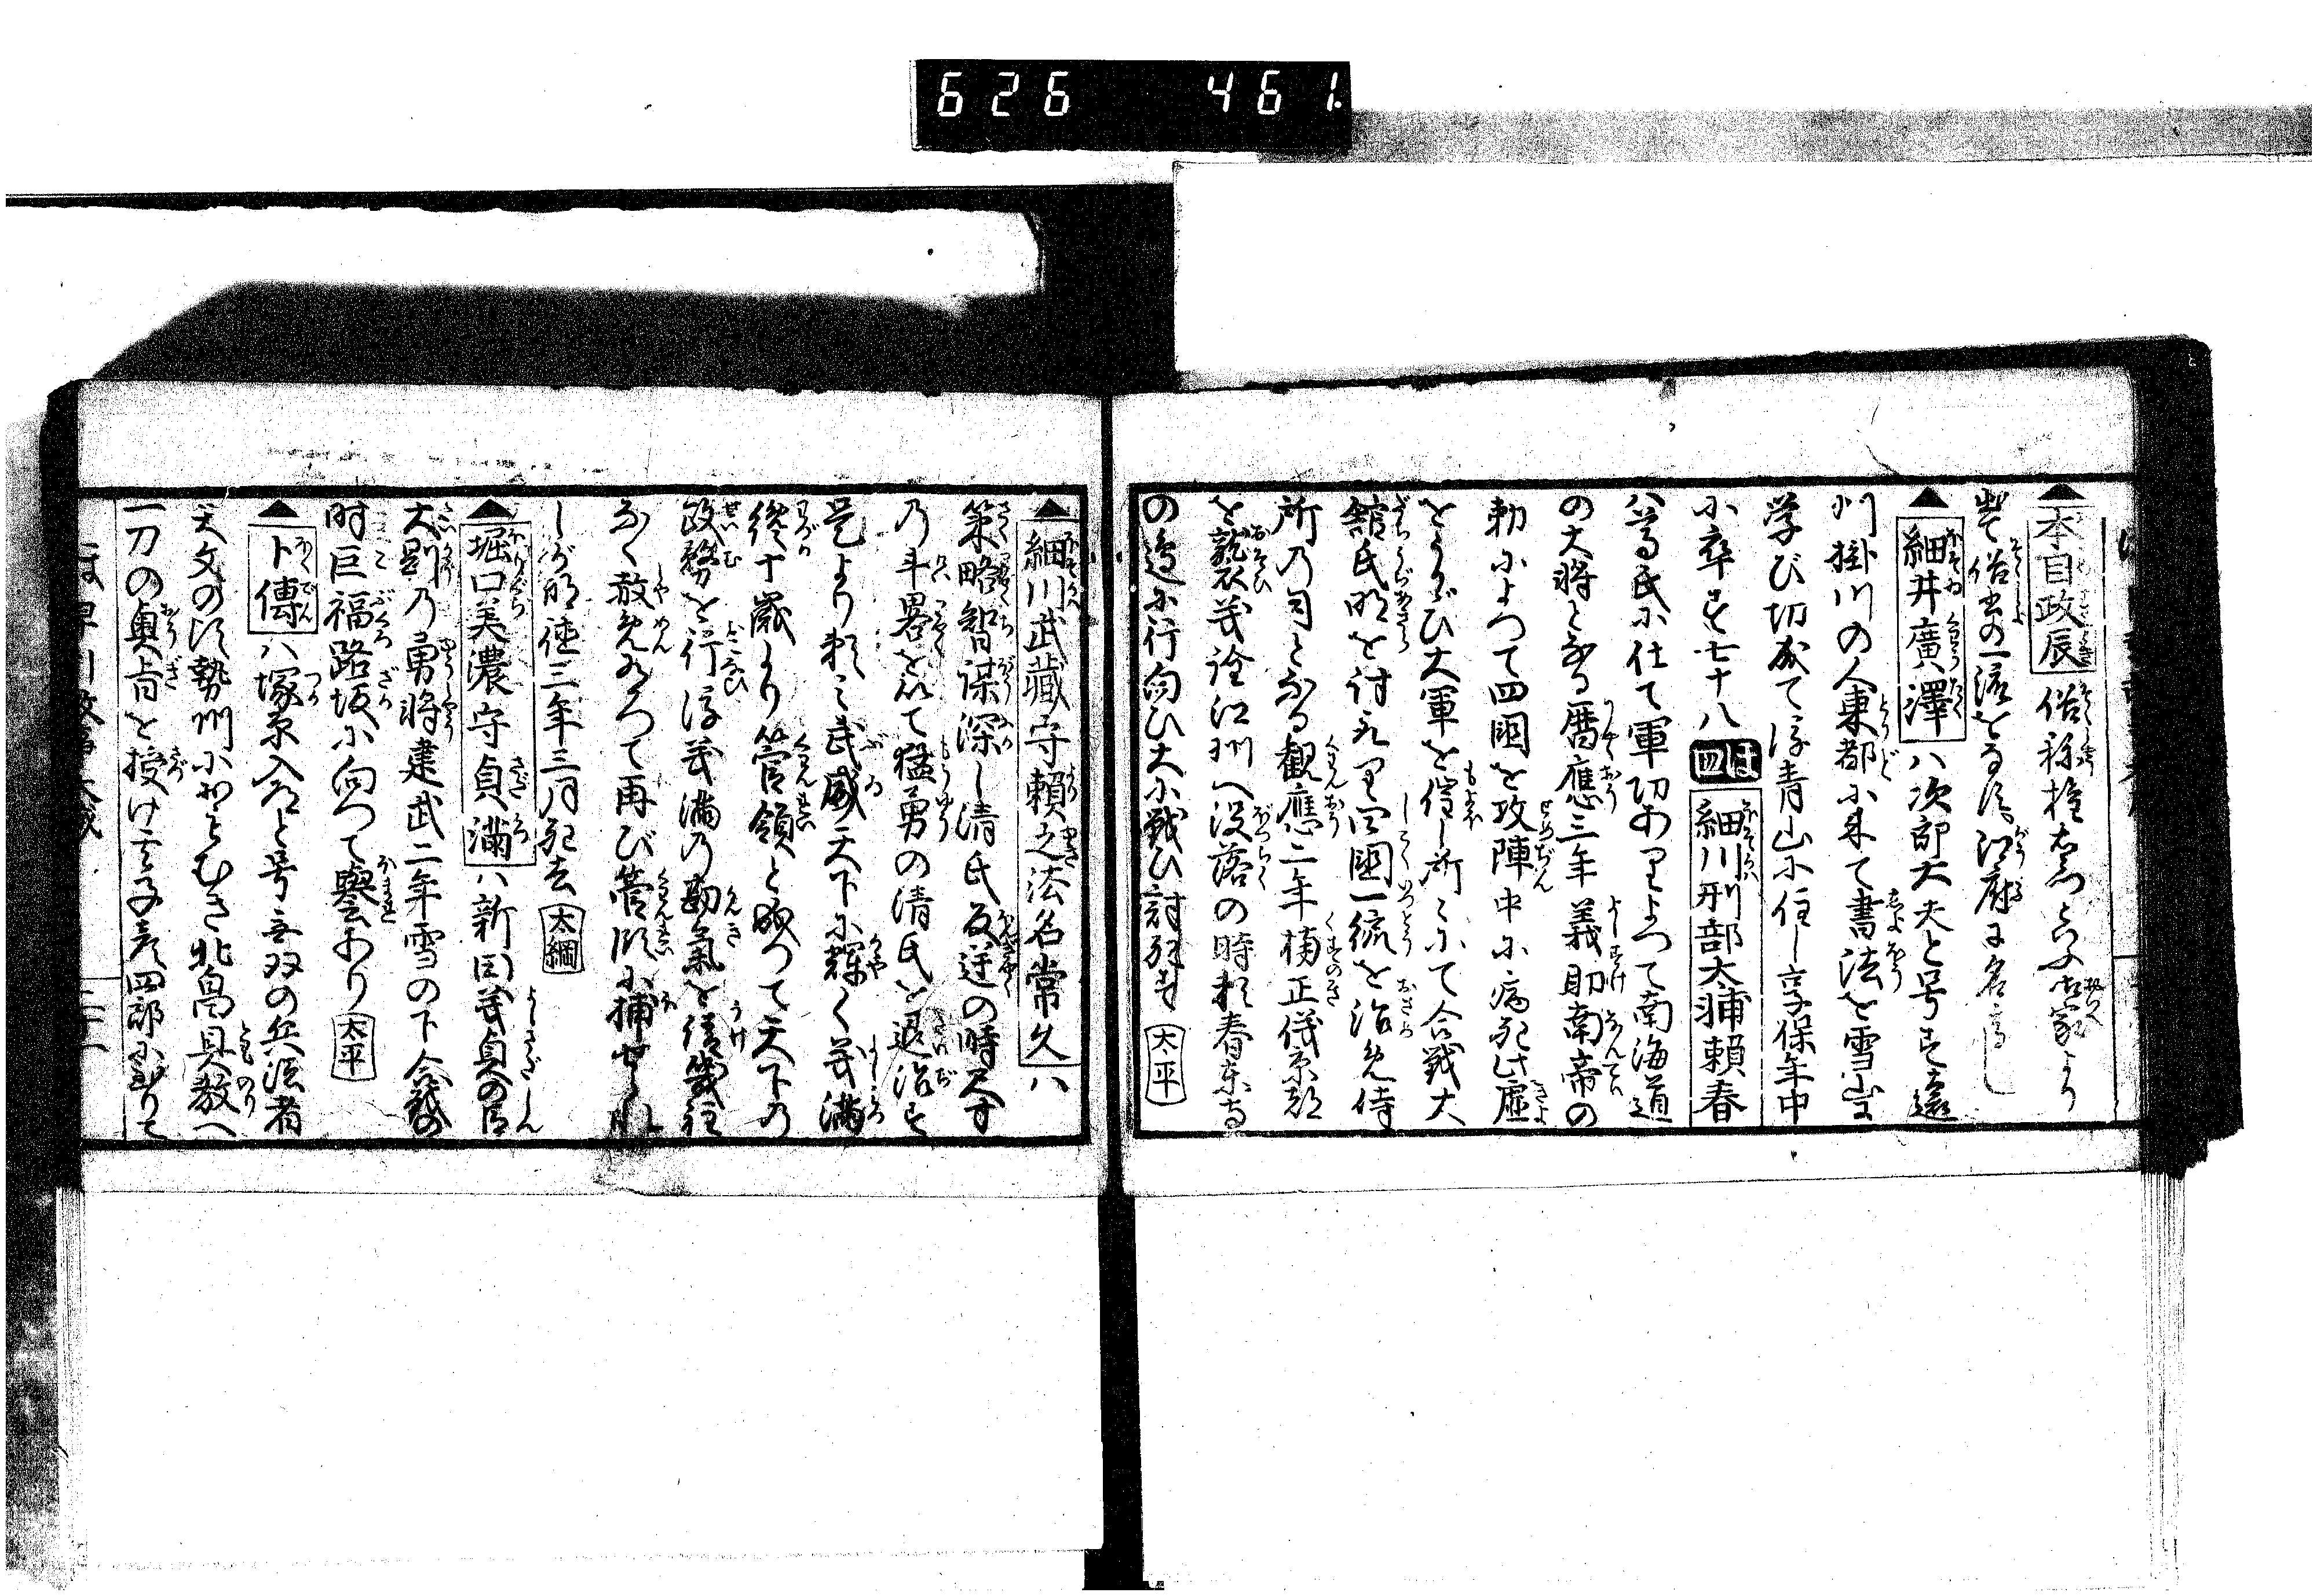 626 461
▲本目政辰俗称権右衛門といふ古流家より
出て俗書の一流をなす江府に名高し
▲細井廣澤ハ次郎大夫と号す遠
州掛川の人東都に来て書法を雪山に
学び切成て後青山に住し享保年中
に卒す七十八 ほ四 細川刑部太輔頼春
ハ尊氏に仕て軍功ありよつて南海道
の大将となる暦應三年義助南帝の
勅によつて四國を攻陣中に病死此虚
をうかゞひ大軍を催し所々にて合戦大
館氏明を討取り四國一統を治め侍
所の司となる観應二年楠正儀京都
を襲義詮江州へ没落の時頼春東寺
の邊に行向ひ大に戦ひ討死す 太平
▲細川武藏守頼之法名常久ハ
策略智謀深し清氏反逆の時天す
の斗畧を以て猛勇の清氏を退治す
是より頼之武威天下に輝く義満
纔十歳より管領と成つて天下の
政務を行後義満の勘氣を請幾程
なく赦免あつて再び管領に補せられ
しが明徳三年三月死去 太綱
▲堀口美濃守貞満ハ新田義貞の臣
大剛の勇将建武二年雪の下合戦の
時巨福路坂に向つて譽あり 太平
▲卜傳ハ塚原入道と号无双の兵法者
天文の頃勢州におもむき北畠具教へ
一刀の奥旨を授け其子彦四郎に至りて